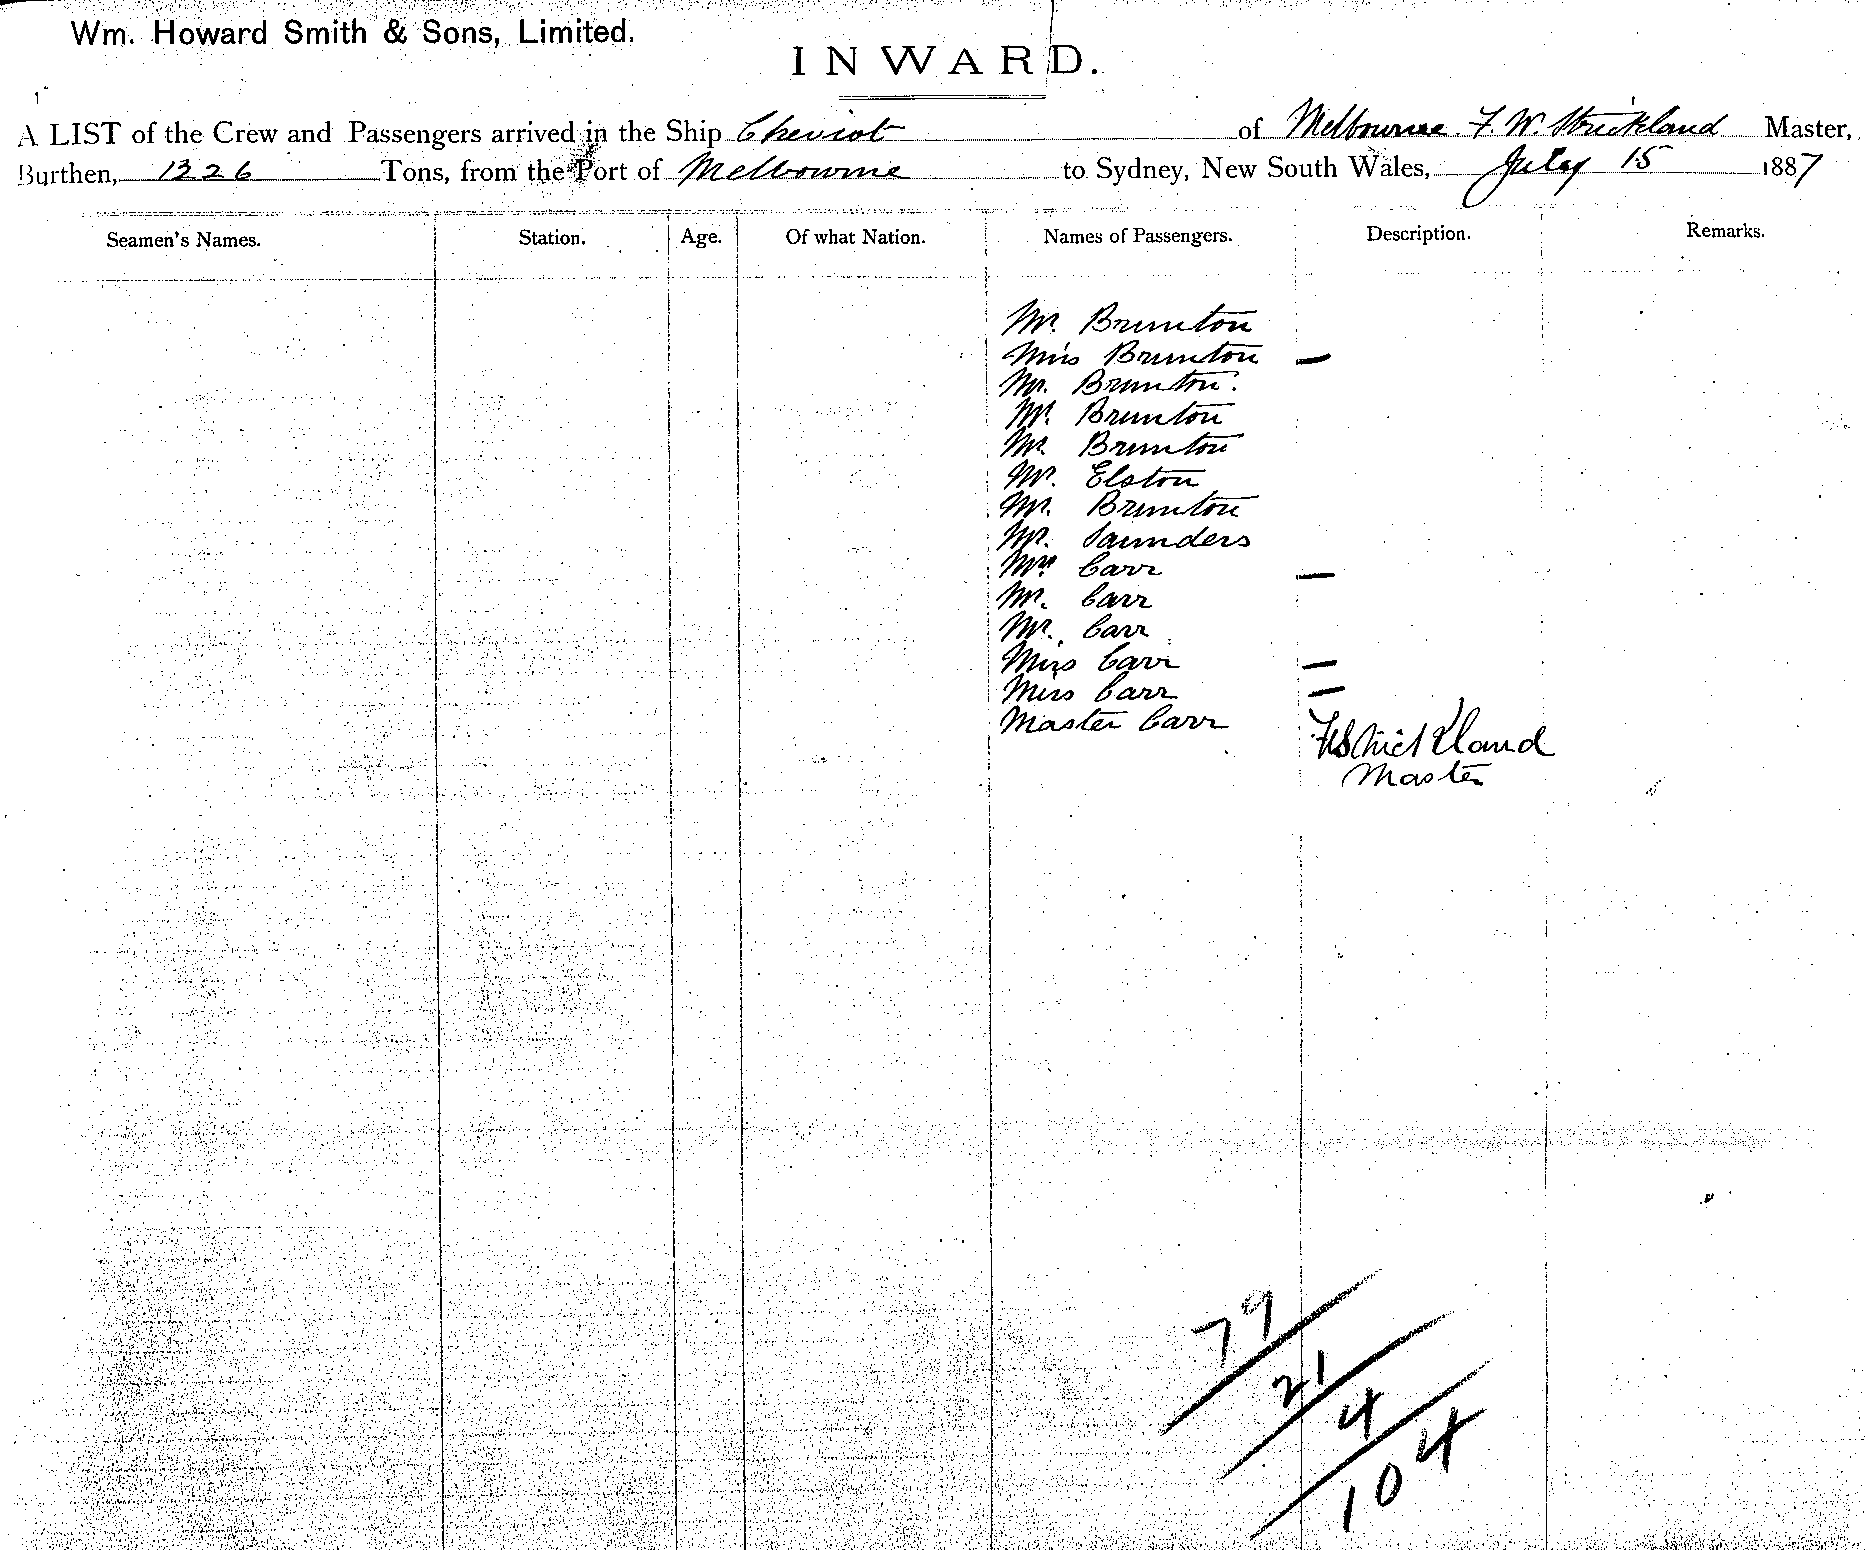 Wm. Howard Smith & Sons, Limited.
INWARD.
A LIST of the Crew and Passengers arrived in the Ship Cheviot of Melbourne F. W. Strickland Master,
Burthen, 1326 Tons, from the Port of Melbourne to Sydney, New South Wales, July 15 1887
Seamen's Names. Station. Age. Of what Nation. Names of Passengers. Description. Remarks.
Mr. Brunton
Miss Brunton —
Mr. Brunton.
Mr. Brunton
Mr. Brunton
Mr. Elston
Mr. Brunton
Mr. Saunders
Mrs Carr —
Mr. Carr
Mr. Carr
Miss Carr —
Miss Carr —
Master Carr
FWStrickland
Master
79
21
4
104